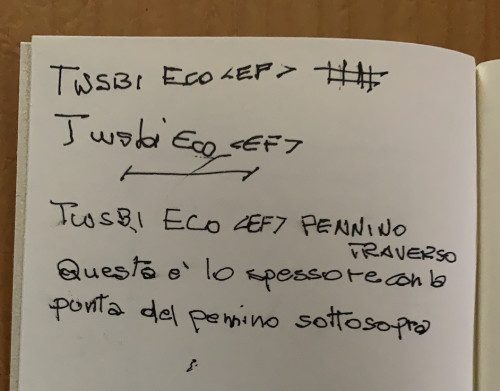 TWSBI ECO <EF>
Twsbi Eco <EF>
TWSBI ECO <EF> PENNINO
TRAVERSO
Questa è lo spessore con la
punta del pennino sottosopra